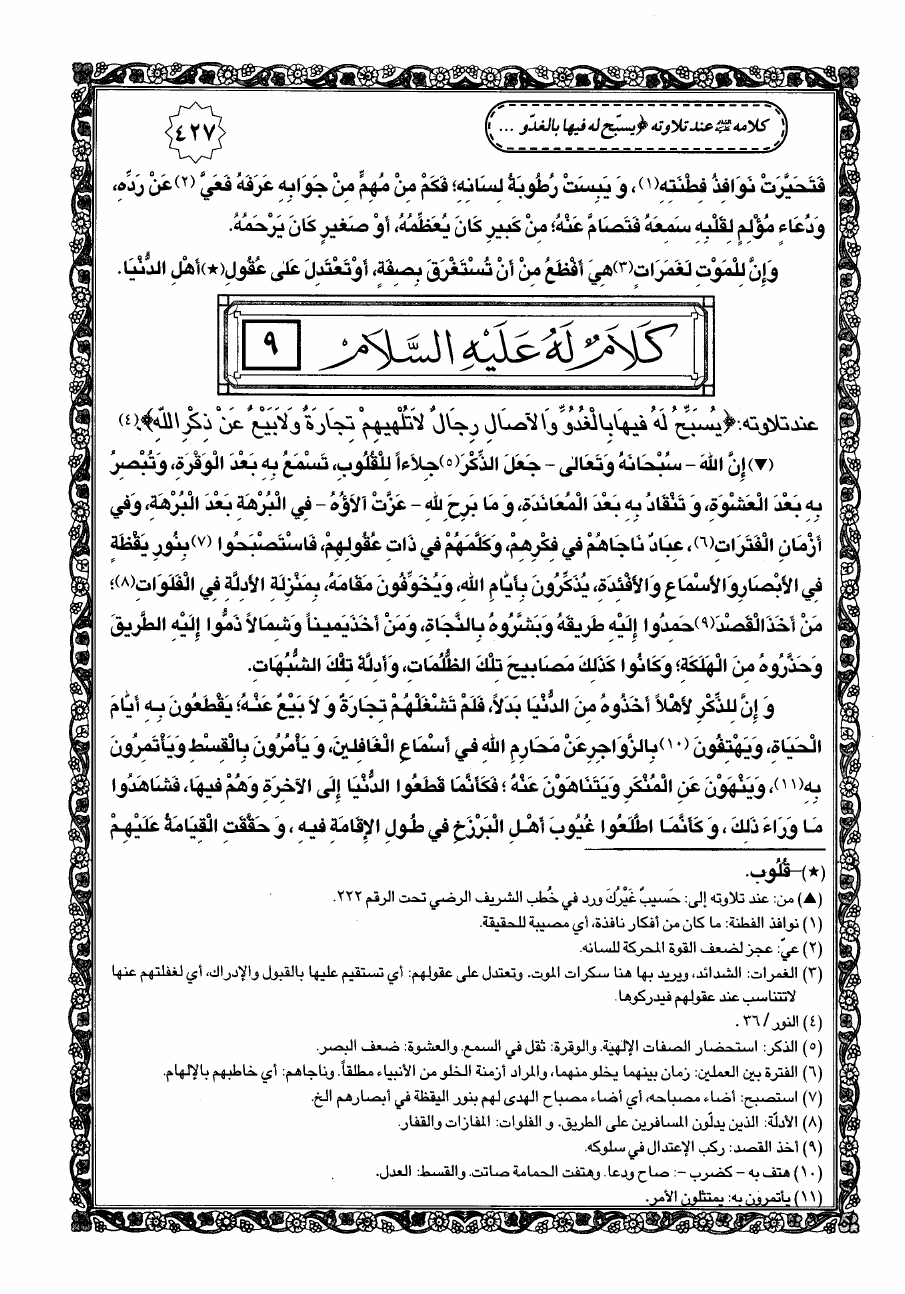 كلامه ﷺ عند تلاوته ﴿يسبّح له فيها بالغدّو ...
٤٢٧
فَتَحَيَّرَتْ نَوَافِذُ فِطْنَتِهِ(١)، وَ يَبِسَتْ رُطُوبَةُ لِسَانِهِ؛ فَكَمْ مِنْ مُهِمٍّ مِنْ جَوَابِهِ عَرَفَهُ فَعَيَّ (٢) عَنْ رَدِّهِ،
وَدُعَاءٍ مُؤْلِمٍ لِقَلْبِهِ سَمِعَهُ فَتَصَامَّ عَنْهُ؛ مِنْ كَبِيرٍ كَانَ يُعَظِّمُهُ، أَوْ صَغيرٍ كَانَ يَرْحَمُهُ.
وَإِنَّ لِلْمَوْتِ لَغَمَرَاتٍ(٣)هِيَ أَفْظَعُ مِنْ أَنْ تُسْتَغْرَقَ بِصِفَةٍ، أَوْتَعْتَدِلَ عَلى عُقُولِ(★)أَهْلِ الدُّنْيَا.
كَلَامٌ لَهُ عَلَيْهِ السَّلَام
٩
عند تلاوته: ﴿يُسَبِّحُ لَهُ فيهَا بِالْغُدُوِّ وَالآصَالِ رِجَالٌ لاَتُلْهيهِمْ تِجَارَةٌ وَلاَبَيْعٌ عَنْ ذِكْرِ اللهِ﴾.(٤)
(▼) إِنَّ اللهَ - سُبْحَانَهُ وَتَعَالى - جَعَلَ الذِّكْرَ(٥)جِلاَءاً لِلْقُلُوبِ، تَسْمَعُ بِهِ بَعْدَ الْوَقْرَةِ، وَتُبْصِرُ
بِهِ بَعْدَ الْعَشْوَةِ، وَ تَنْقَادُ بِهِ بَعْدَ الْمُعَانَدَةِ، وَ مَا بَرِحَ لِلهِ - عَزَّتْ آلاَؤُهُ - فِي الْبُرْهَةِ بَعْدَ الْبُرْهَةِ، وَفي
أَزْمَانِ الْفَتَرَاتِ(٦)، عِبَادٌ نَاجَاهُمْ في فِكْرِهِمْ، وَكَلَّمَهُمْ في ذَاتِ عُقُولِهِمْ، فَاسْتَصْبَحُوا (٧) بِنُورِ يَقْظَةٍ
فِي الأَبْصَارِ وَالأَسْمَاعِ وَالأَفْئِدَةِ، يُذَكِّرُونَ بِأَيَّامِ اللهِ، وَيُخَوِّفُونَ مَقَامَهُ، بِمَنْزِلَةِ الأَدِلَّةِ فِي الْفَلَوَاتِ(٨)؛
مَنْ أَخَذَ الْقَصْدَ(٩)حَمِدُوا إِلَيْهِ طَريقَهُ وَبَشَّرُوهُ بِالنَّجَاةِ، وَمَنْ أَخَذَ يَميناً وَشِمَالاً ذَمُّوا إِلَيْهِ الطَّريقَ
وَحَذَّرُوهُ مِنَ الْهَلَكَةِ؛ وَكَانُوا كَذَلِكَ مَصَابيحَ تِلْكَ الظُّلُمَاتِ، وَأَدِلَّةَ تِلْكَ الشُّبُهَاتِ.
وَ إِنَّ لِلذِّكْرِ لأَهْلاً أَخَذُوهُ مِنَ الدُّنْيَا بَدَلاً، فَلَمْ تَشْغَلْهُمْ تِجَارَةٌ وَ لاَ بَيْعٌ عَنْهُ؛ يَقْطَعُونَ بِهِ أَيَّامَ
الْحَيَاةِ، وَيَهْتِفُونَ (١٠) بِالزَّوَاجِرِ عَنْ مَحَارِمِ اللهِ في أَسْمَاعِ الْغَافِلينَ، وَ يَأْمُرُونَ بِالْقِسْطِ وَيَأْتَمِرُونَ
بِهِ(١١)، وَيَنْهَوْنَ عَنِ الْمُنْكَرِ وَيَتَنَاهَوْنَ عَنْهُ ؛ فَكَأَنَّمَا قَطَعُوا الدُّنْيَا إِلَى الآخِرَةِ وَهُمْ فيهَا، فَشَاهَدُوا
مَا وَرَاءَ ذَلِكَ ، وَ كَأَنَّمَا اطَّلَعُوا غُيُوبَ أَهْلِ الْبَرْزَخِ في طُولِ الإِقَامَةِ فيهِ ، وَ حَقَّقَتِ الْقِيَامَةُ عَلَيْهِمْ
(★)-قُلُوبِ.
(▲) من: عند تلاوته إلى: حَسيبٌ غَيْرُكَ ورد في خُطب الشريف الرضي تحت الرقم ٢٢٢.
(١) نوافذ الفطنة: ما كان من أفكار نافذة، أي مصيبة للحقيقة.
(٢) عيّ: عجز لضعف القوة المحركة للسانه.
(٣) الغمرات: الشدائد، ويريد بها هنا سكرات الموت. وتعتدل على عقولهم: أي تستقيم عليها بالقبول والإدراك، أي لغفلتهم عنها
لاتتناسب عند عقولهم فيدركوها.
(٤) النور / ٣٦ .
(٥) الذكر: استحضار الصفات الإلهية. والوقرة: ثقل في السمع. والعشوة: ضعف البصر.
(٦) الفترة بين العملين: زمان بينهما يخلو منهما، والمراد أزمنة الخلو من الأنبياء مطلقاً. وناجاهم: أي خاطبهم بالإلهام.
(٧) استصبح: أضاء مصباحه، أي أضاء مصباح الهدى لهم بنور اليقظة في أبصارهم الخ.
(٨) الأدلّة: الذين يدلّون المسافرين على الطريق. و الفلوات: المفازات والقفار.
(٩) أخذ القصد: ركب الإعتدال في سلوكه.
(١٠) هتف به - كضرب -: صاح ودعا. وهتفت الحمامة صاتت. والقسط: العدل.
(١١) يأتمرون به: يمتثلون الأمر.